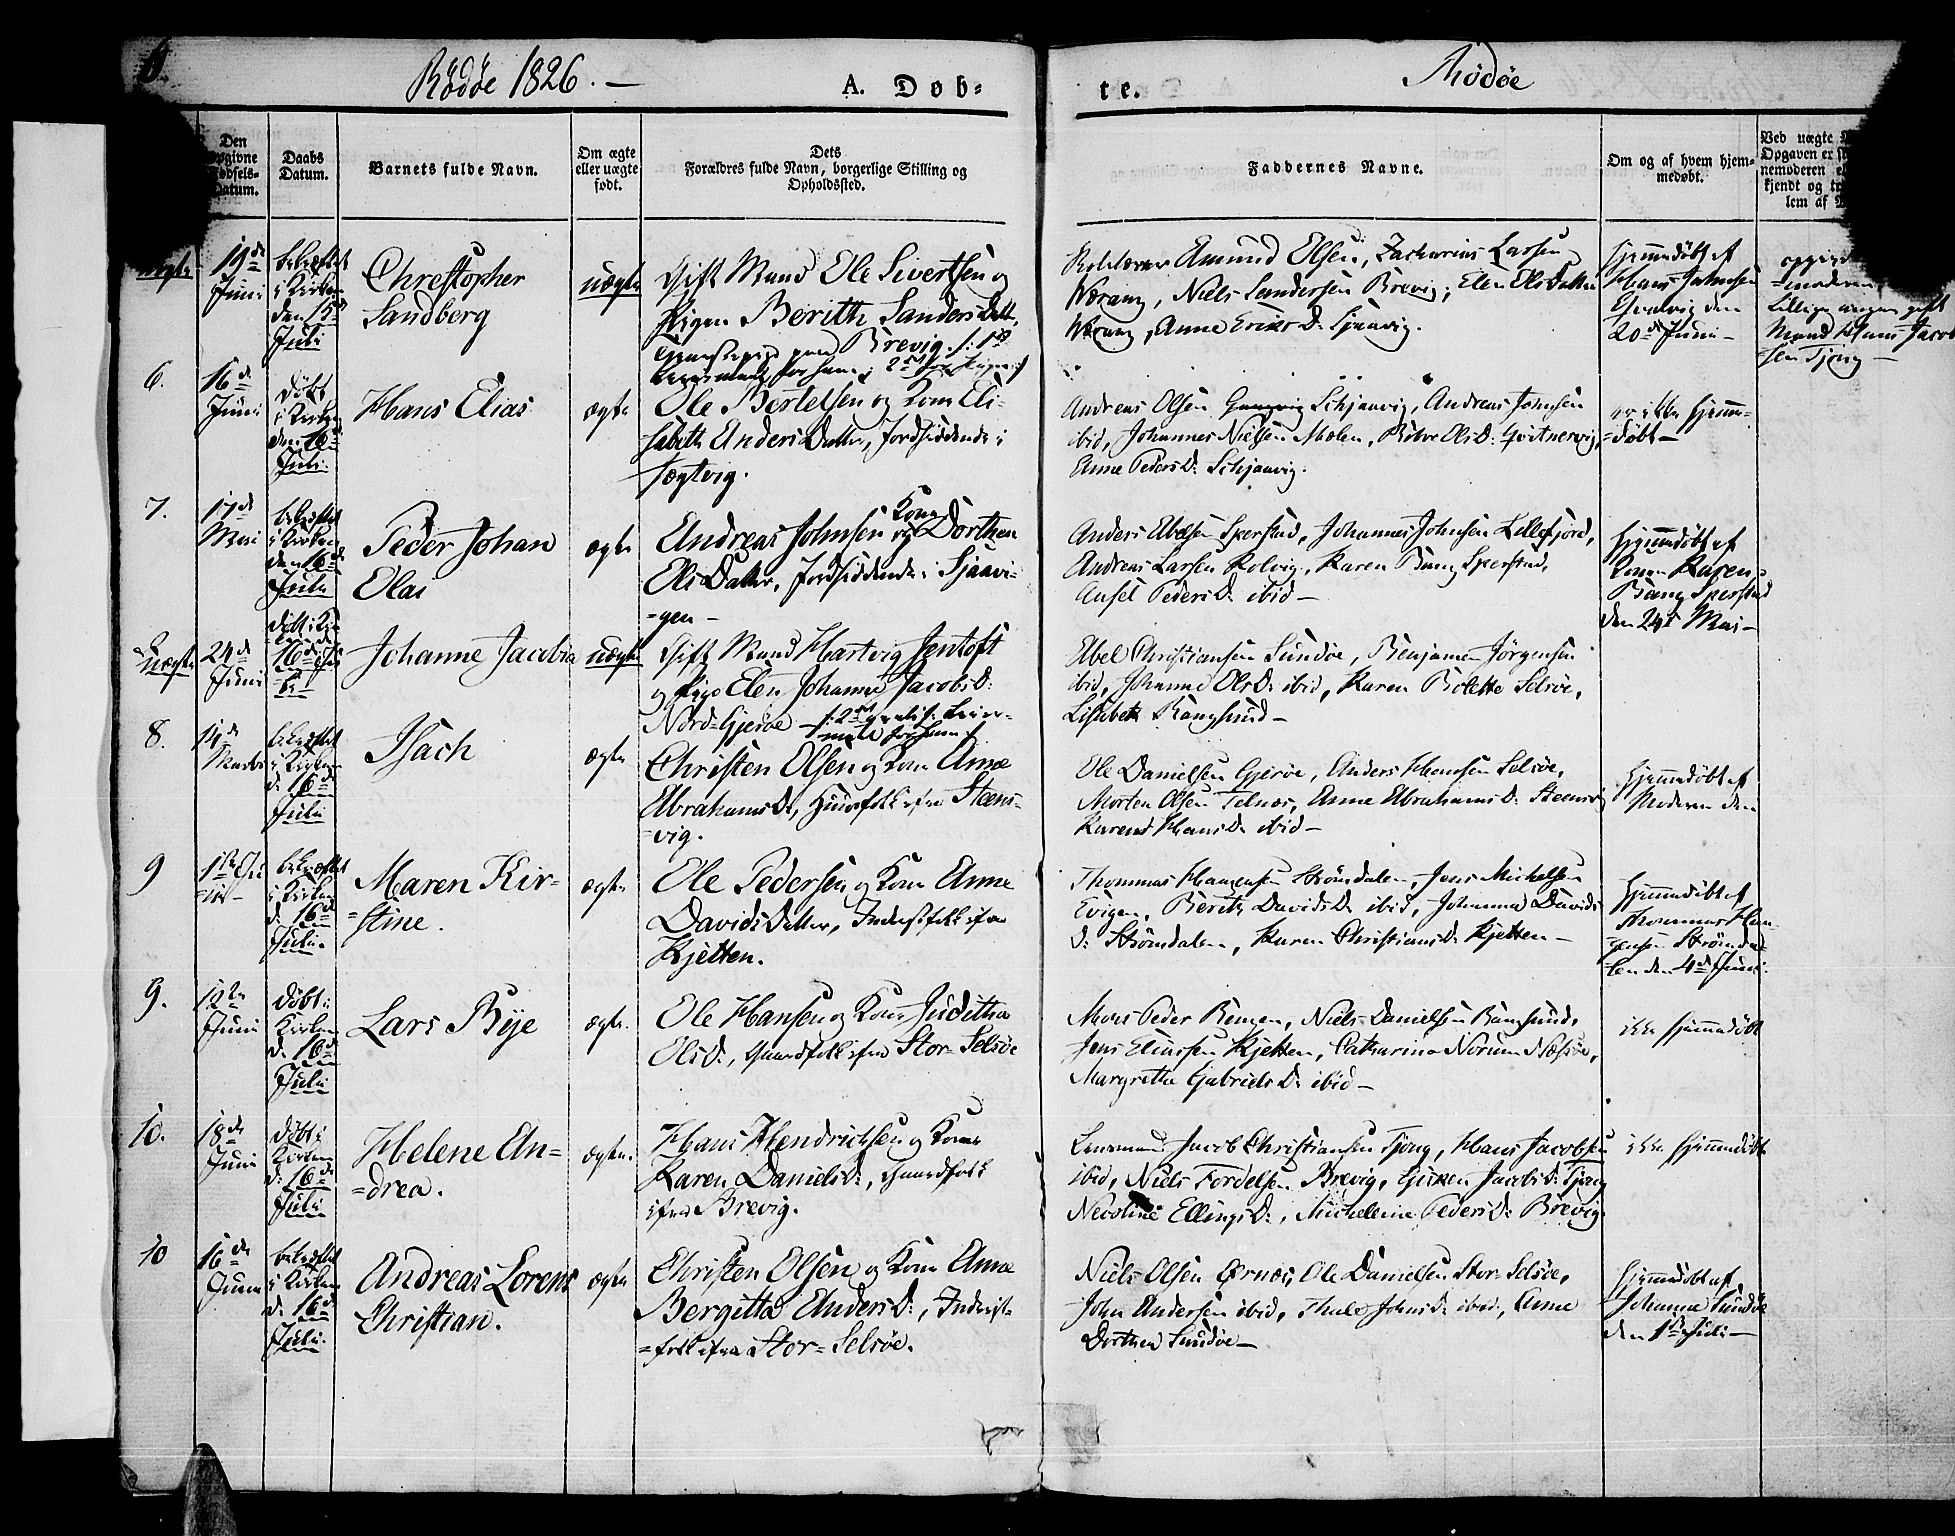 6.
Rødøe 1826. —
A. Døb-
te.
Rødøe
Den
opgivne
Fødsels-
Datum.
Daabs
Datum.
Barnets fulde Navn.
Om ægte
eller uægte
født.
Dets
Forældres fulde Navn, borgerlige Stilling og
Opholdssted.
Faddernes Navne.
Om og af hvem hjem-
medøbt.
Ved uægte
Opgaven er
nemoderen
kjendt og
lem af
uægte.
19de
Juni
bekræftet
i Kirken
den 15de
Juli
Christopher
Sandberg
uægte
Gift Mand Ole Sivertsen og
Pigen Berith Sanders Datt.
Brevig /: 1ste
Leiermaal for ham, 2det for Pigen :/
Amund Olsen, Zacharias Larsen
Værang, Niels Sandersen Brevig, Elen Ols Datter
Værang, Anne Eriks D. Sjaavig.
Hjemmedøbt af
Hans Johnsen
den
20de Juni —
opgivet
moderen
Mand Hans Jacob-
sen Tjong —
6.
16de
Juni
døbt
i Kirken
den 16de
Juli.
Hans Elias
ægte
Ole Bertelsen og Kone Eli-
sabeth Anders Datter, Jordsiddende i
Tægtvig.
Andreas Olsen Schjaavig, Andreas Johnsen
ibid, Johannes Nielsen Mælen, Ols D:
Anne Peders D: Schjaavig.
er ikke hjemme-
=døbt —
7.
17de
Mai
bekræftet
i Kirken
den 16de
Juli
Peder Johan
Olai
ægte
Andreas Johnsen og Kone Dorthea
Els Datter, Jordsiddende i Sjaavi-
=gen —
Anders Abelsen Sperstad, Johannes Johnsen Lillefjord,
Andreas Larsen Rolvig, Karen Bang Sperstad,
Ansel Peders D: ibid —
Hjemmedøbt af
Konen Karen
Bang Sperstad
den 24de Mai —
uægte
24de
Juni
døbt i Kir-
ken den
16de Ju-
li
Johanne Jacobia
uægte
Gift Mand Hartvig Jentoft
og Pige Elen Johanne Jacobs D:
Nord-Gjerøe — /: 2det Leier-
maal for ham :/
Abel Christiansen Sundøe, Benjamin Jørgensen
ibid, Johanna Ols D: ibid, Karen Bolette Selsøe,
Lisabeth Rangsund —
8.
14de
Marts
bekræftet
i Kirken
d: 16de
Juli
Isach
ægte
Christen Olsen og Kone Anne
Abrahams D:, Huusfolk ifra Steens-
=vig.
Ole Danielsen Gjerøe, Anders Hansen Selsøe,
Morten Olsen Telnæs, Anne Abrahams D: Steensvig
Karen Hans D: ibid —
Hjemmedøbt af
Moderen den
9
1ste Ju-
=ni —
bekræftet
i Kirken
d: 16de
Juli.
Maren Kir-
=stine.
ægte
Ole Pedersen og Kone Anne
Davids Datter, Inderstfolk ifra
Kjelten.
Thommas Hansen Strømdalen, Jens Michelsen
Evigen, Berith Davids D: ibid, Johanna Davids
D: Strømdalen, Karen Christians D: Kjelten —
Hjemmedøbt af
Thommas Han-
sen Strømda-
=len den 4de Juni.
9.
12te
Juni
døbt i
Kirken
d: 16de
Juli
Lars Bye
ægte.
Ole Hansen og Kone Juditha
Ols D:, Gaardfolk ifra Stor-Selsøe
Mons Peder Bengen, Niels Danielsen Rangsund,
Jens Eliassen Kjelten, Catharina Norum Næsøe,
Margretha Gabriels D: ibid —
ikke hjemmedøbt
10.
18de
Juni
døbt i
Kirken
d: 16de
Juli
Helene An-
=drea.
ægte.
Hans Hendrichsen og Kone
Karen Daniels D:, Gaardfolk
ifra Brevig.
Lensmand Jacob Christiansen Tjong, Hans Jacobsen
ibid, Niels Tordelsen Brevig, Gurien Jacobs D: Tjong
Nicoline Ellings D:, Michelina Peders D: Brevig.
ikke hjemmedøbt
10
16de
Juni
bekræftet
i Kirken
d: 16de
Juli.
Andreas Lorens
Christian.
ægte
Christen Olsen og Kone Anne
Bergitta Anders D:, Inderst-
=folk ifra Stor-Selsøe.
Niels Olsen Ørnæs, Ole Danielsen Stor-Selsøe,
John Andersen ibid, Thale Johns D: ibid, Anne
Dorthea Sundøe —
Hjemmedøbt af
Johanne Sundøe
den 1ste Juli —